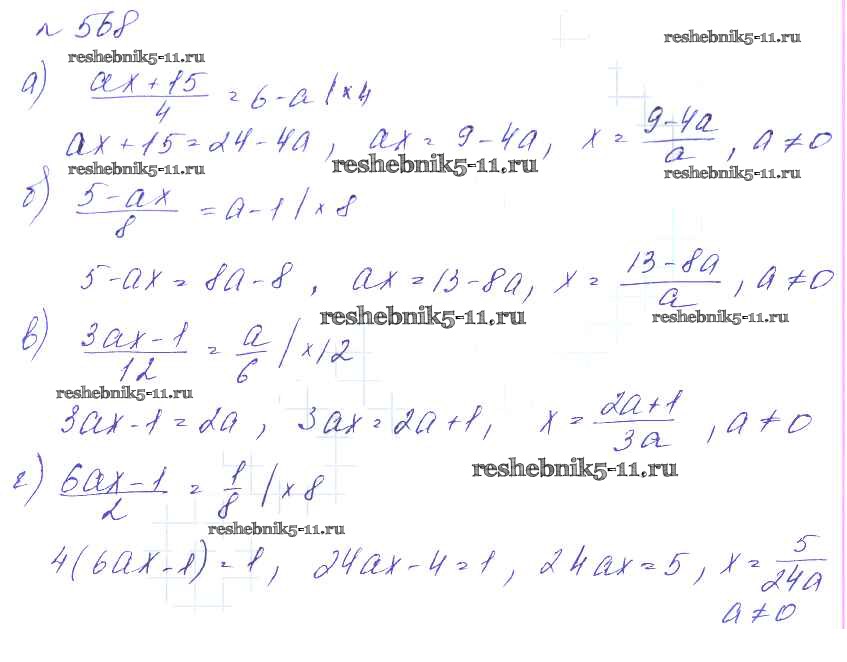 № 568
reshebnik5-11.ru reshebnik5-11.ru
а) (ax+15)/4 = 6-a |×4
ax+15=24-4a, ax=9-4a, x=(9-4a)/a, a≠0
reshebnik5-11.ru reshebnik5-11.ru reshebnik5-11.ru
б) (5-ax)/8 = a-1 |×8
5-ax=8a-8, ax=13-8a, x=(13-8a)/a, a≠0
reshebnik5-11.ru reshebnik5-11.ru
в) (3ax-1)/12 = a/6 |×12
reshebnik5-11.ru
3ax-1=2a, 3ax=2a+1, x=(2a+1)/3a, a≠0
reshebnik5-11.ru
г) (6ax-1)/2 = 1/8 |×8
reshebnik5-11.ru
4(6ax-1)=1, 24ax-4=1, 24ax=5, x=5/24a
a≠0